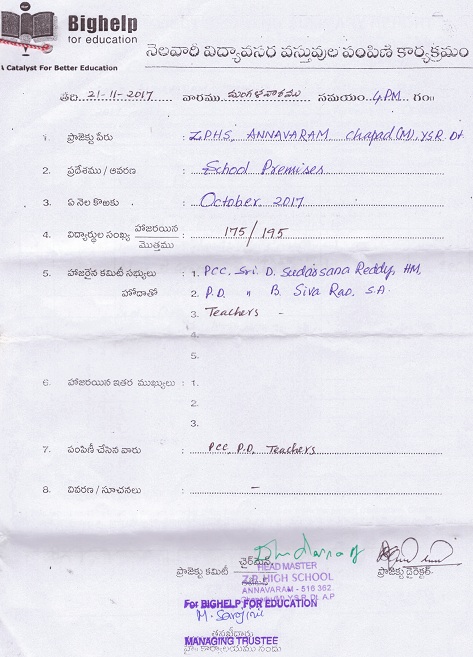 Bighelp
for education
A Catalyst For Better Education
నెలవారీ విద్యావసర వస్తువుల పంపిణీ కార్యక్రమం
తేది 21-11-2017 వారము మంగళవారము సమయం 4 P.M గం॥
1. ప్రాజెక్టు పేరు : Z.P.H.S, ANNAVARAM chapad (M), Y.S.R. Dt.
2. ప్రదేశము / ఆవరణ : School Premises
3. ఏ నెల కొఱకు : October 2017
4. విద్యార్థుల సంఖ్య హాజరయిన / మొత్తము : 175/195
5. హాజరైన కమిటీ సభ్యులు : 1. PCC. Sri D. Sudarsana Reddy, HM,
హోదాతో 2. P.D. " B. Siva Rao. S.A.
3. Teachers -
4.
5.
6. హాజరయిన ఇతర ముఖ్యులు : 1.
2.
3.
7. పంపిణీ చేసిన వారు : PCC, P.D, Teachers
8. వివరణ / సూచనలు : -
ప్రాజెక్టు కమిటీ ఛైర్మన్ ప్రాజెక్టు డైరెక్టర్
HEAD MASTER
Z.P. HIGH SCHOOL
ANNAVARAM - 516 362.
Chapadu (M), Y.S.R. Dt. A.P
For BIGHELP FOR EDUCATION
M. Sarojini
MANAGING TRUSTEE